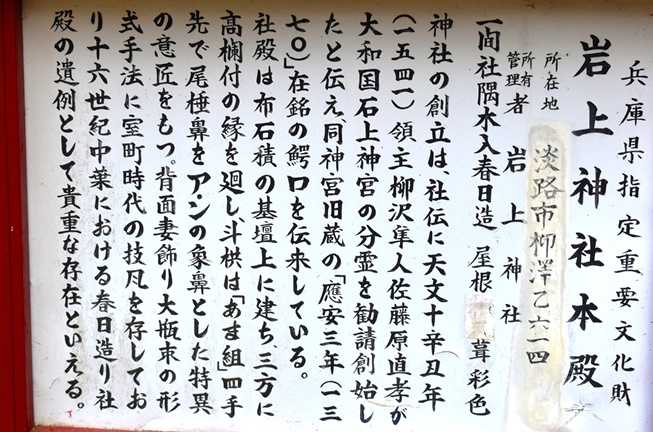 兵庫県指定重要文化財
岩上神社本殿
所在地 淡路市柳澤乙六一四
所有
管理者 岩上神社
一間社隅木入春日造 屋根 葺彩色
神社の創立は、社伝に天文十辛丑年
(一五四一)領主柳沢隼人佐藤原直孝が
大和国石上神宮の分霊を勧請創始し
たと伝え、同神宮旧蔵の「應安三年(一三
七〇)」在銘の鰐口を伝来している。
社殿は布石積の基壇上に建ち、三方に
高欄付の縁を廻し、斗栱は「あま組」四手
先で尾棰鼻をアンの象鼻とした特異
の意匠をもつ。背面妻飾り大瓶束の形
式手法に室町時代の技凡を存してお
り十六世紀中葉における春日造り社
殿の遺例として貴重な存在といえる。